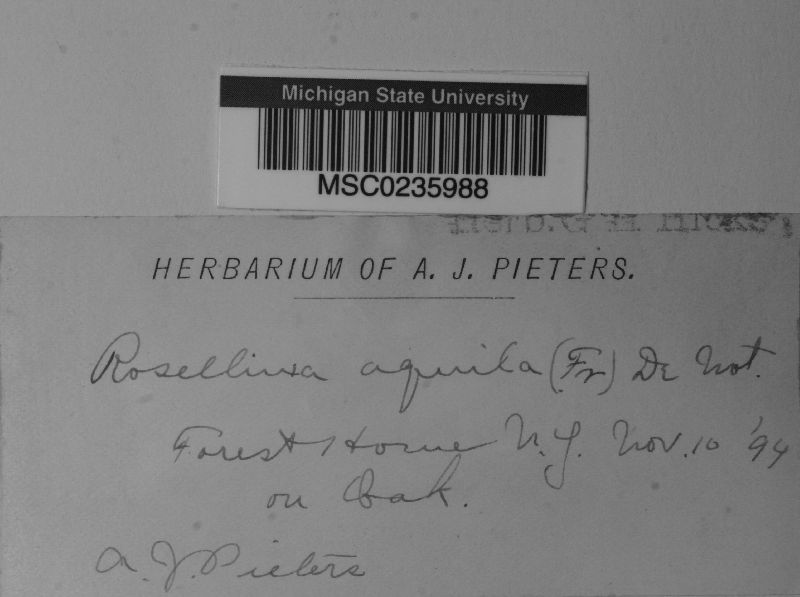 Michigan State University
MSC0235988
HERBARIUM OF A. J. PIETERS.
Rosellinia aquila (Fr) De Not.
Forest Home N.Y. Nov. 10 '94
on Oak.
A. J. Pieters